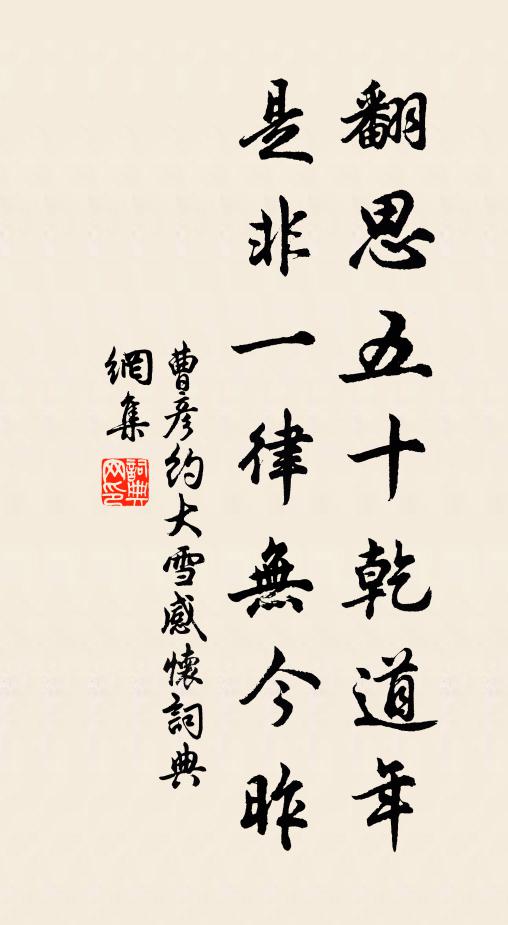 翻思五十乾道年
是非一律無今昨
曹彥約大雪感懷詞典
網集
詞典網印